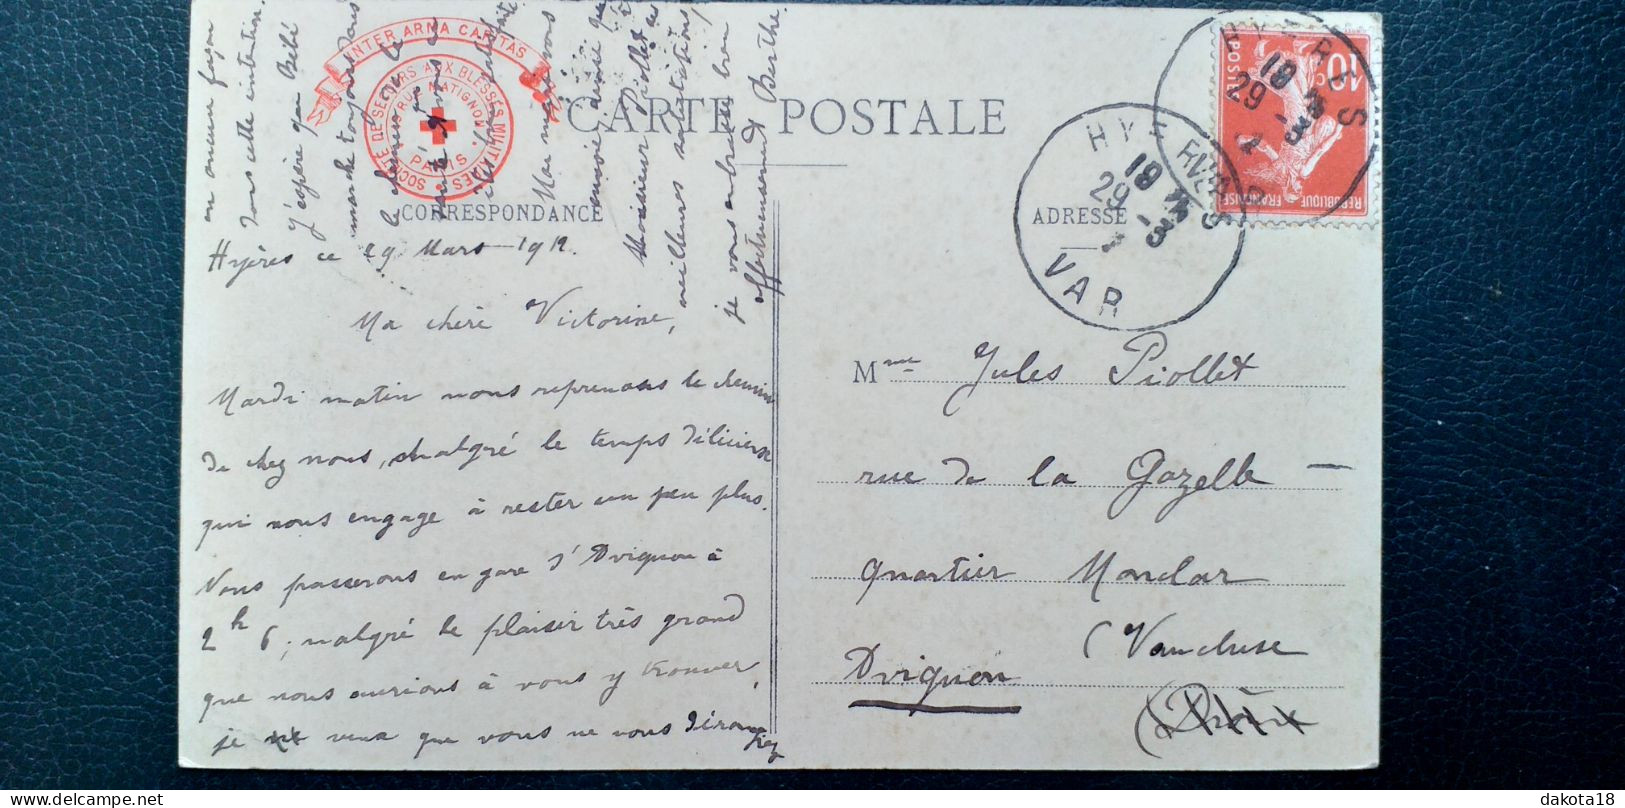 CARTE POSTALE
CORRESPONDANCE
ADRESSE
INTER ARMA CARITAS
SOCIÉTÉ DE SECOURS AUX BLESSÉS MILITAIRES
19, RUE MATIGNON.
PARIS
10
POSTES
REPUBLIQUE FRANÇAISE
HYERES
VAR
HYERES
19
29 - 3
VAR
Hyères ce 29 Mars 1912.
Ma chère Victorine,
Mardi matin nous reprenons le chemin
de chez nous, malgré le temps délicieux
qui nous engage à rester un peu plus.
Nous passerons en gare d'Avignon à
2h 6, malgré le plaisir très grand
que nous aurions à vous y trouver,
je veux que vous ne vous dérangiez
en aucune façon
dans cette intention.
J'espère que Bébé
marche toujours dans
le chemin de la
santé & vous
Mon mari vous
envoie, ainsi que
Monsieur Piollet
meilleures salutations,
je vous embrasse bien
affectueusement Berthe.
Mme Jules Piollet
rue de la Gazelle -
quartier Monclar
Avignon (Vaucluse
dakota18